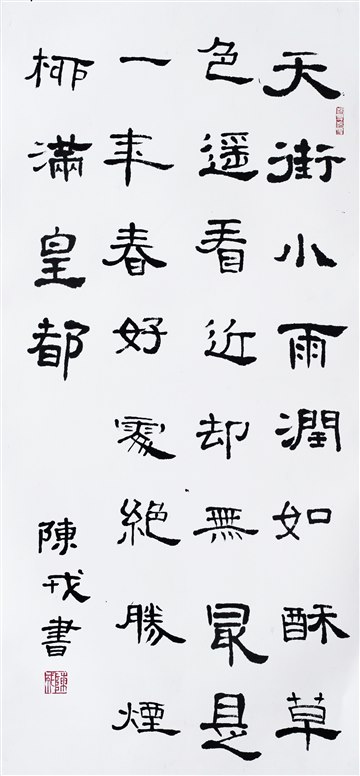 天街小雨潤如酥草
色遙看近却無最是
一年春好處絶勝煙
柳滿皇都
陳戎書